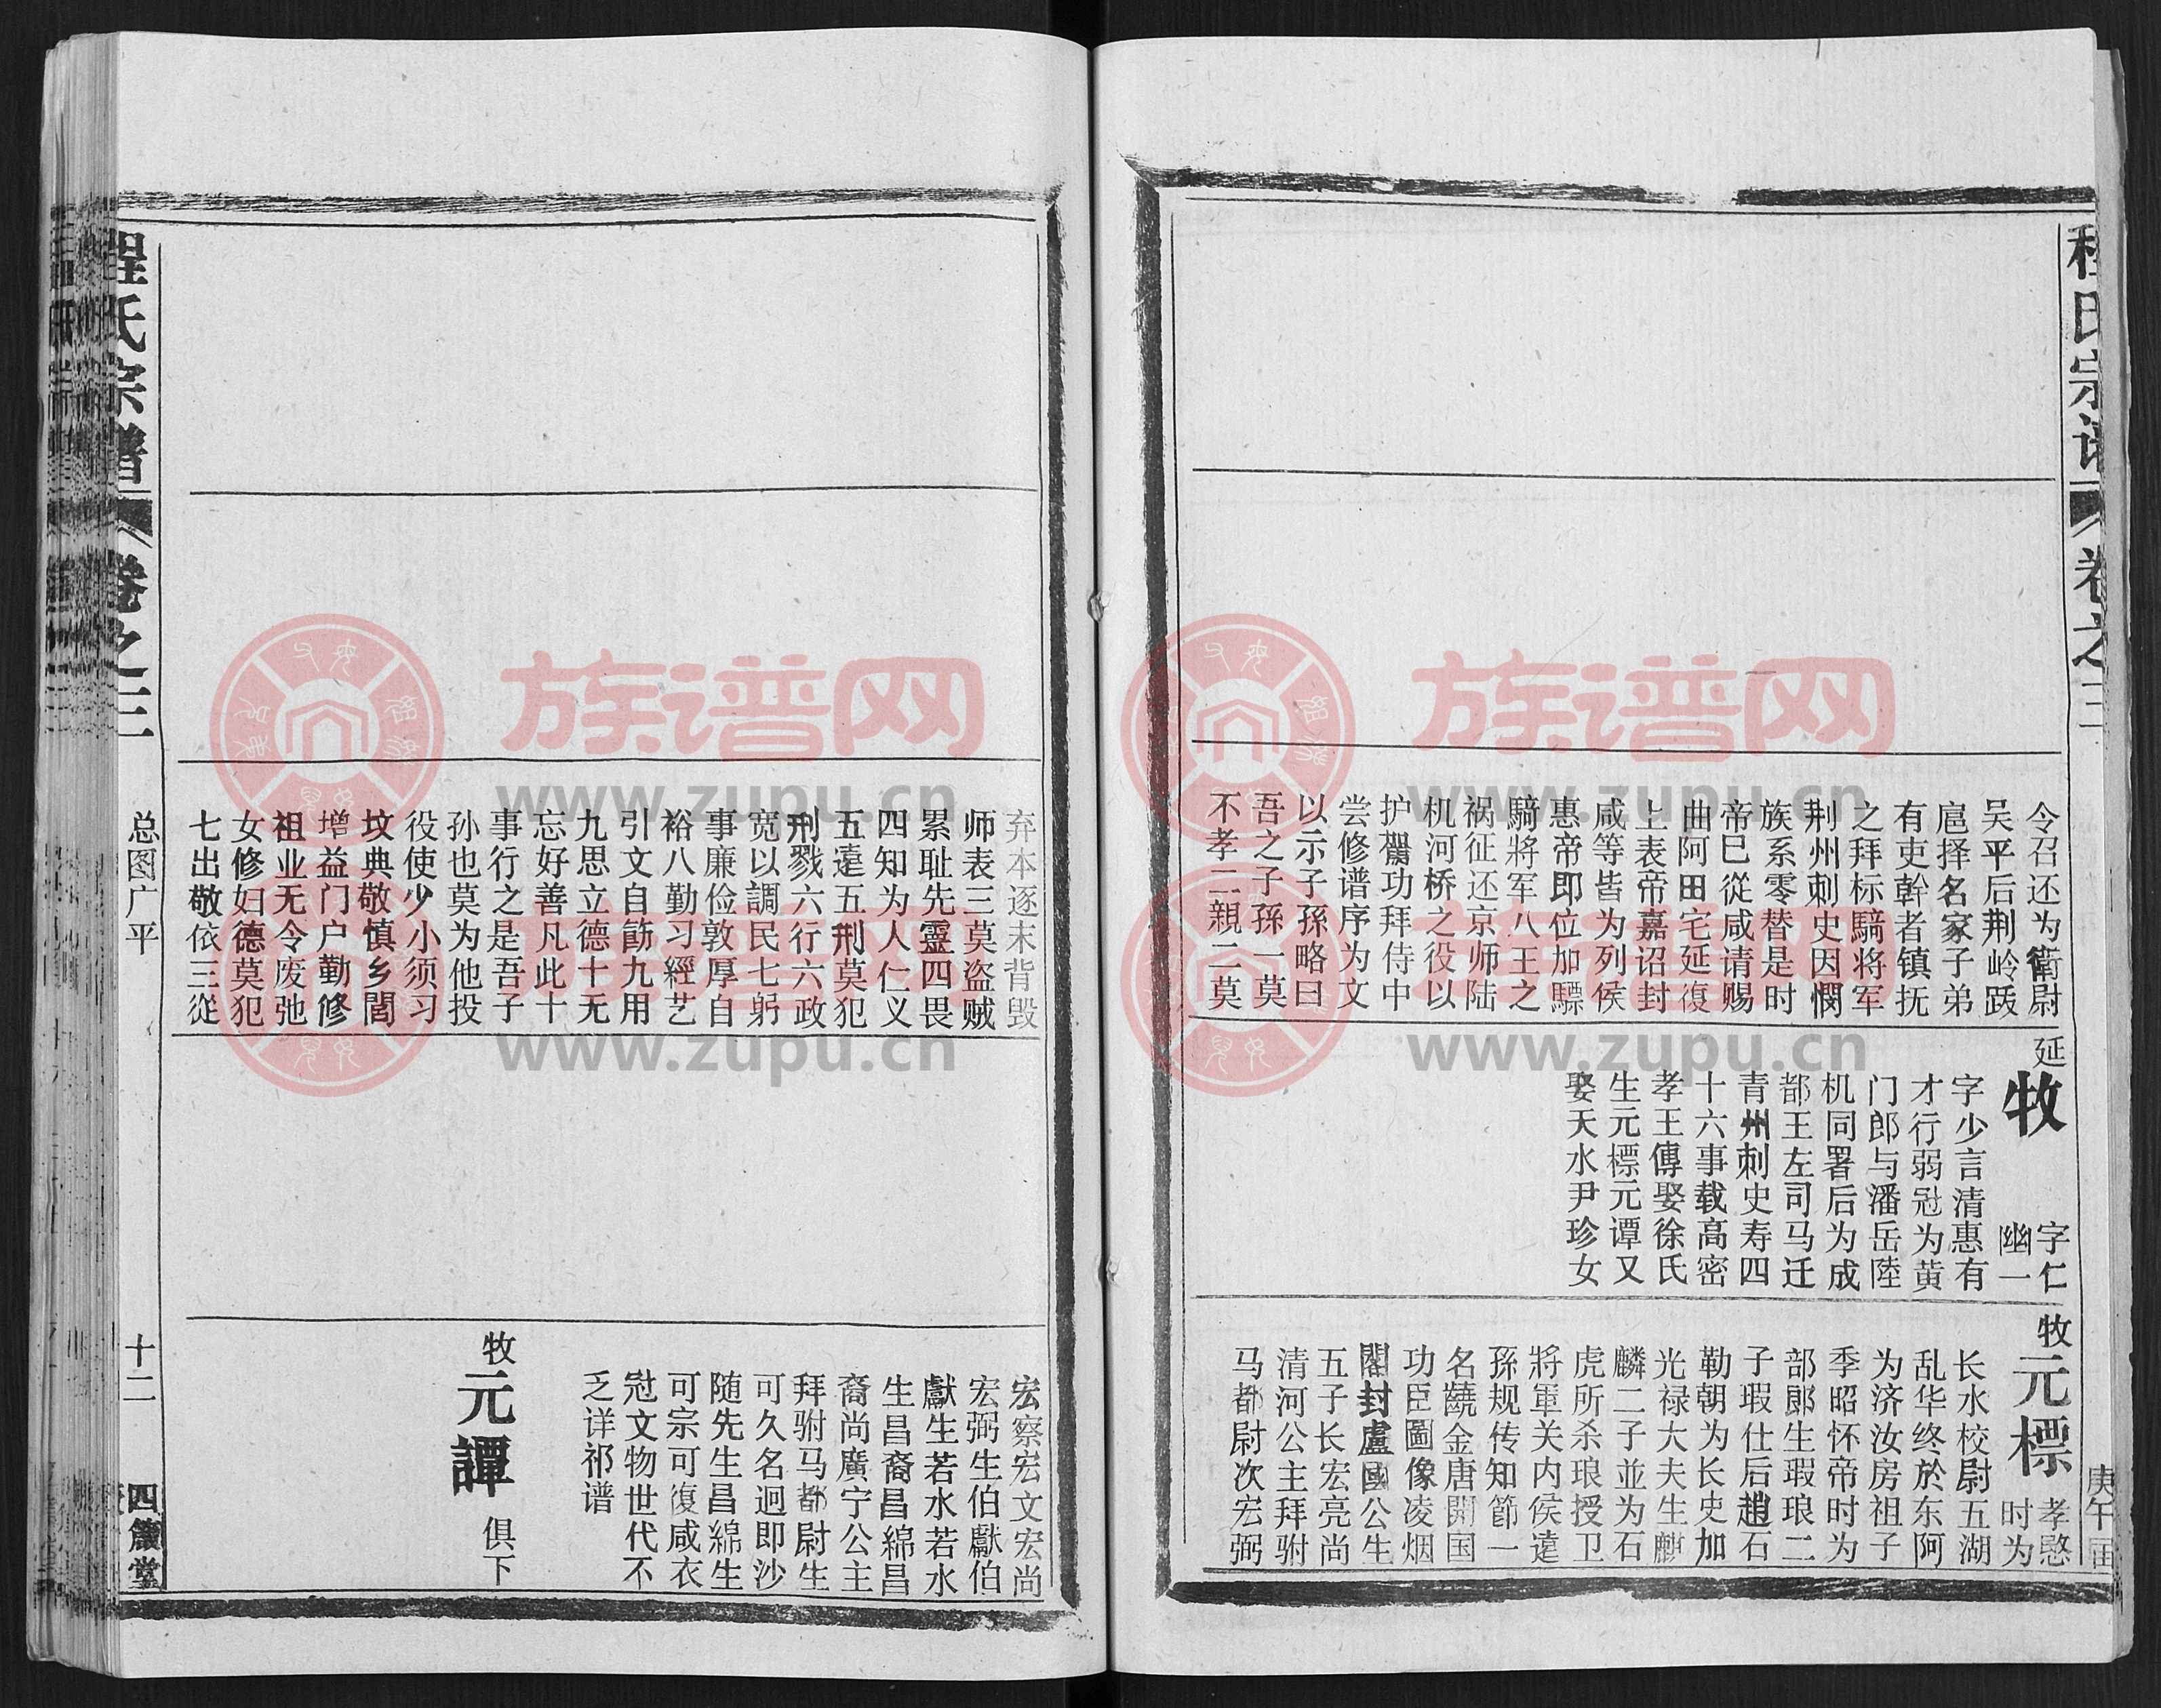 程氏宗谱
卷之三
庚午
令召还为衛尉
吴平后荆岭跋
扈择名家子弟
有吏幹者镇抚
之拜标騎将军
荆州刺史因憫
族系零替是时
帝巳從咸请赐
曲阿田宅延復
上表帝嘉诏封
咸等皆为列侯
惠帝即位加驃
騎將军八王之
祸征还京师陆
机河桥之役以
护駕功拜侍中
尝修谱序为文
以示子孫略曰
吾之子孫一莫
不孝二親二莫
延
牧
字仁
幽一
字少言清惠有
才行弱冠为黄
门郎与潘岳陸
机同署后为成
都王左司马迁
青州刺史寿四
十六事载高密
孝王傳娶徐氏
生元標元谭又
娶天水尹珍女
牧
元標
孝愍
时为
长水校尉五湖
乱华终於东阿
为济汝房祖子
季昭怀帝时为
部郎生瑕琅二
子瑕仕后趙石
勒朝为长史加
光禄大夫生麟
麟二子並为石
虎所杀琅授卫
將軍关内侯遠
孫规传知節一
名饒金唐開国
功臣圖像凌烟
閣封盧國公生
五子长宏亮尚
清河公主拜驸
马都尉次宏弼
弃本逐末背毁
师表三莫盗贼
累耻先靈四畏
四知为人仁义
五違五刑莫犯
刑戮六行六政
宽以調民七躬
事廉俭敦厚自
裕八勤习經艺
引文自飭九用
九思立德十无
忘好善凡此十
事行之是吾子
孙也莫为他投
役使少小须习
坟典敬慎乡閭
增益门户勤修
祖业无令废弛
女修妇德莫犯
七出敬依三從
宏察宏文宏尚
宏弼生伯獻伯
獻生若水若水
生昌裔昌綿昌
裔尚廣宁公主
拜驸马都尉生
可久名迥即沙
随先生昌綿生
可宗可復咸衣
冠文物世代不
乏详祁谱
牧
元譚
俱下
程氏宗譜
卷之三
总图广平
十二
四箴堂
族谱网
www.zupu.cn
族谱网
www.zupu.cn
族谱网
www.zupu.cn
族谱网
www.zupu.cn